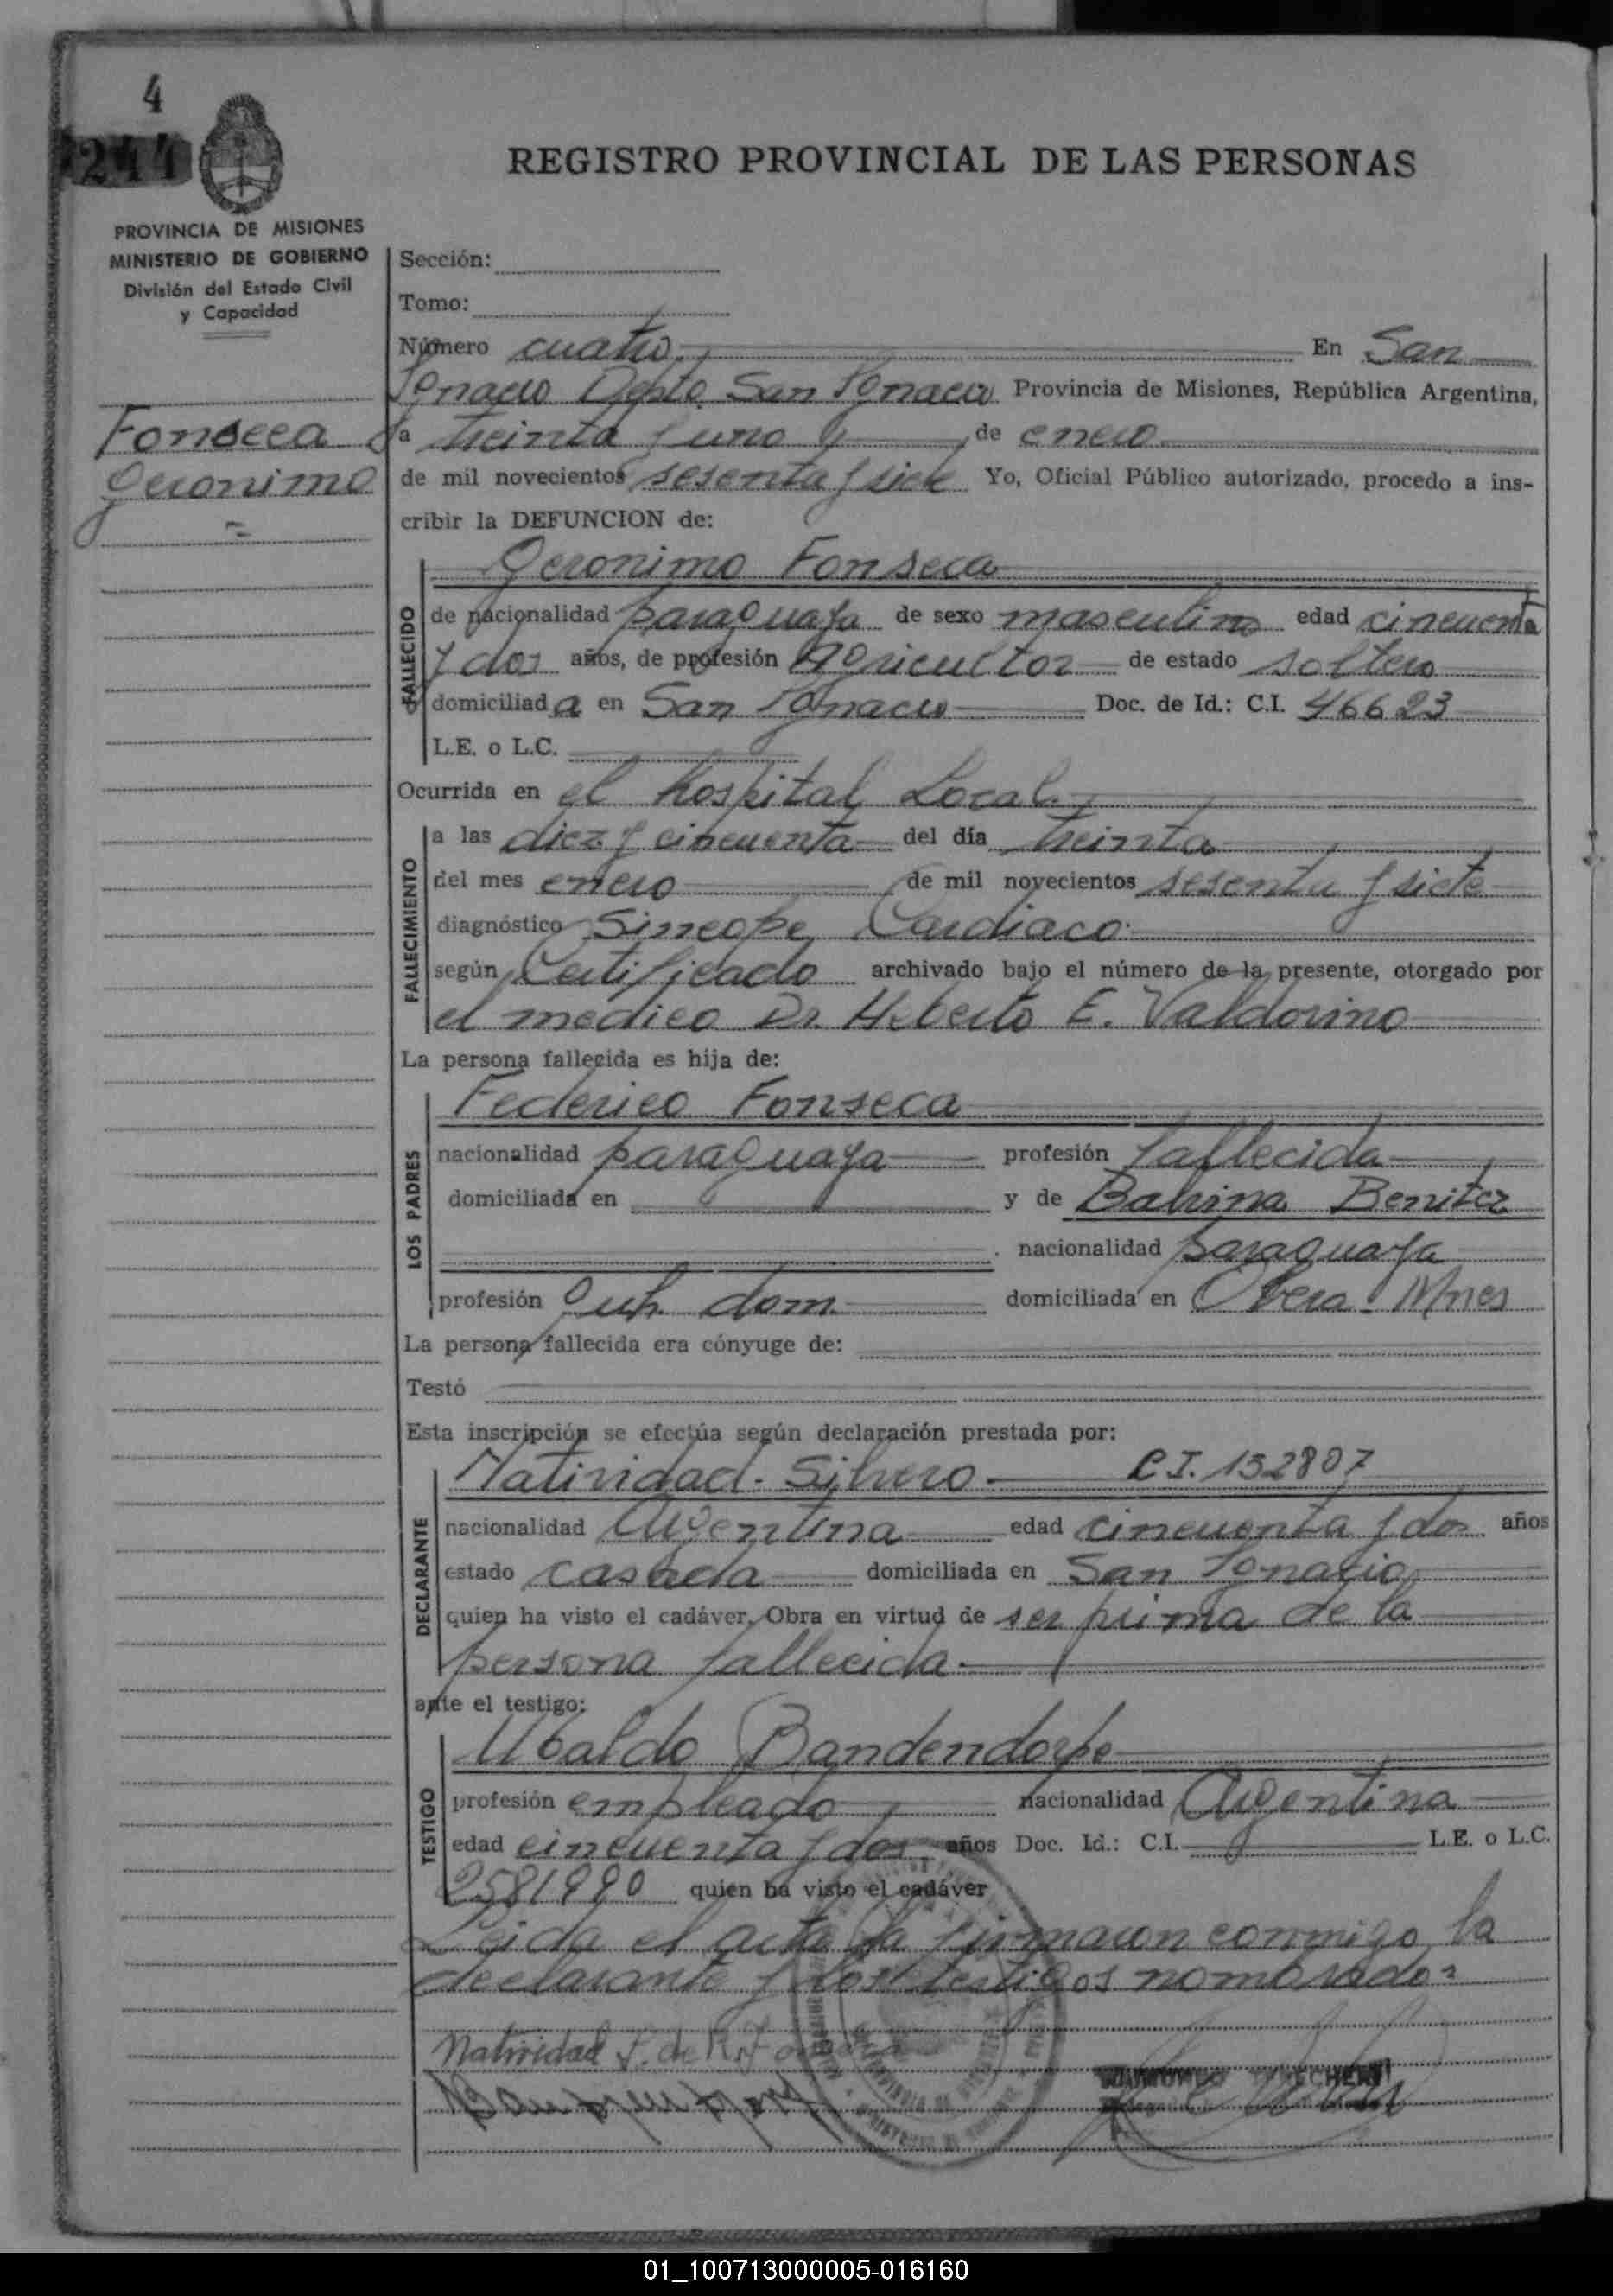 4
244
REGISTRO PROVINCIAL DE LAS PERSONAS
PROVINCIA DE MISIONES
MINISTERIO DE GOBIERNO
División del Estado Civil
y Capacidad
Fonseca
Geronimo
Sección:
Tomo:
Número cuatro En San
Ignacio Depto. San Ignacio Provincia de Misiones, República Argentina,
a treinta y uno de enero
de mil novecientos sesenta y siete Yo, Oficial Público autorizado, procedo a ins-
cribir la DEFUNCION de:
Geronimo Fonseca
FALLECIDO
de nacionalidad paraguaya de sexo masculino edad cincuenta
y dos años, de profesión Agricultor de estado soltero
domiciliada en San Ignacio Doc. de Id.: C.I. 46623
L.E. o L.C.
Ocurrida en el hospital Local
FALLECIMIENTO
a las diez y cincuenta del día treinta
del mes enero de mil novecientos sesenta y siete
diagnóstico Sincope Cardiaco
según Certificado archivado bajo el número de la presente, otorgado por
el medico Dr. Heberto E. Valdovino
La persona fallecida es hija de:
LOS PADRES
Federico Fonseca
nacionalidad paraguaya profesión fallecida
domiciliada en y de Babina Benitez
nacionalidad paraguaya
profesión queh. dom. domiciliada en Obera - Mnes
La persona fallecida era cónyuge de:
Testó
Esta inscripción se efectúa según declaración prestada por:
DECLARANTE
Natividad Silvero C.I. 152807
nacionalidad Argentina edad cincuenta y dos años
estado casada domiciliada en San Ignacio
quien ha visto el cadáver. Obra en virtud de ser prima de la
persona fallecida.
ante el testigo:
TESTIGO
Ubaldo Bandendorpe
profesión empleado nacionalidad Argentina
edad cincuenta y dos años Doc. Id.: C.I. L.E. o L.C.
2581990 quien ha visto el cadáver
Leida el acta la firmaron conmigo la
declarante y los testigos nombrados
Natividad S. de
01_100713000005-016160